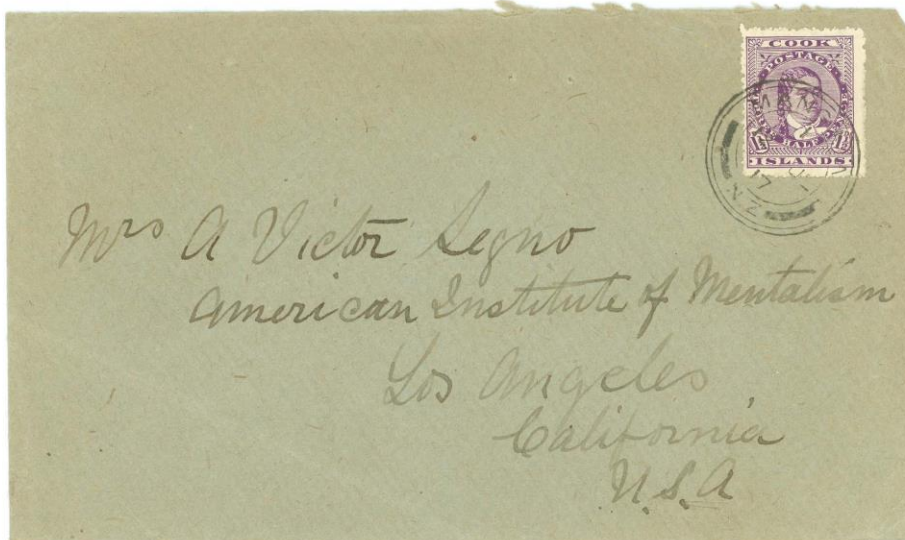 COOK
POSTAGE
HALF
1½ 1½
ISLANDS
17
NZ
Mrs A Victor Segno
American Institute of Mentalism
Los Angeles
California
U.S.A